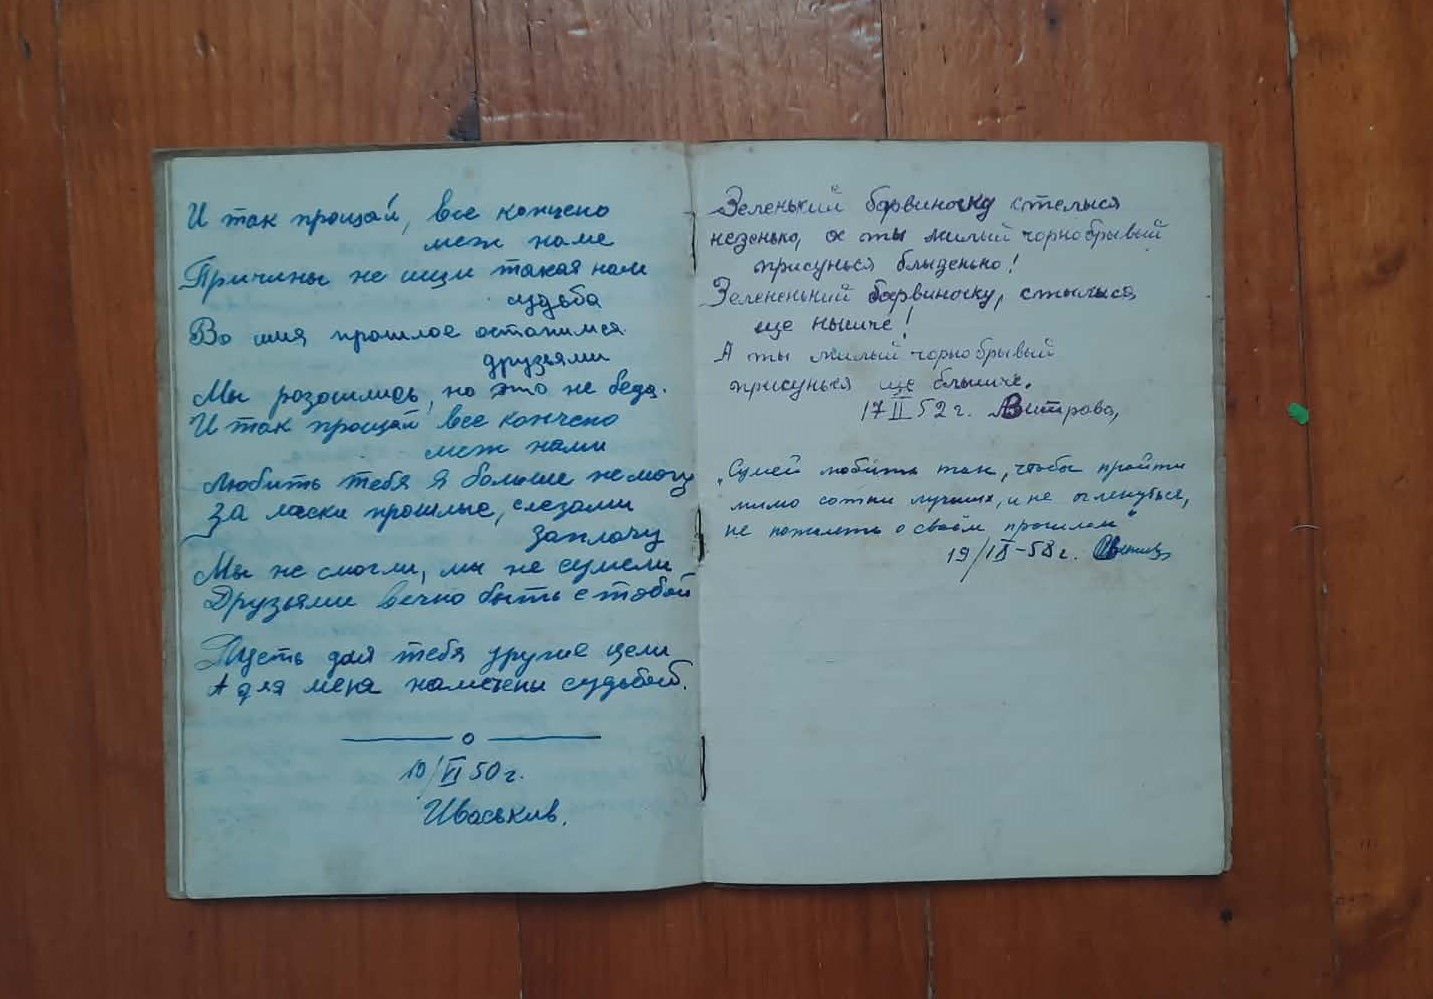 И так прощай, все концено
меж наме
Причины не ищи такая нам
судьба
Во имя прошлое останимся
друзьями
Мы розошлись, но это не беда.
И так прощай все кончено
меж нами
Любить тебя я больше не могу
За ласки прошлые, слезами
заплачу
Мы не смогли, мы не сумели
Друзьями вечно быть с тобой
Пусть для тебя другие цели
А для меня намечены судьбой.
о
19/VI 50 г.
Иваськив.
Зеленький барвиночку стелыся
незенько, а ты милый чорнобрывый
присунься блызенько!
Зелененький барвиночку, стылыся
ще нышче!
А ты милый чорнобрывый
присунься ще блышче.
17 II 52 г. Витрова,
"Сумей любить так, чтобы пройти
мимо сотни лучших, и не оглянуться,
не пожалеть о своём прошлом"
19/IX-58 г.